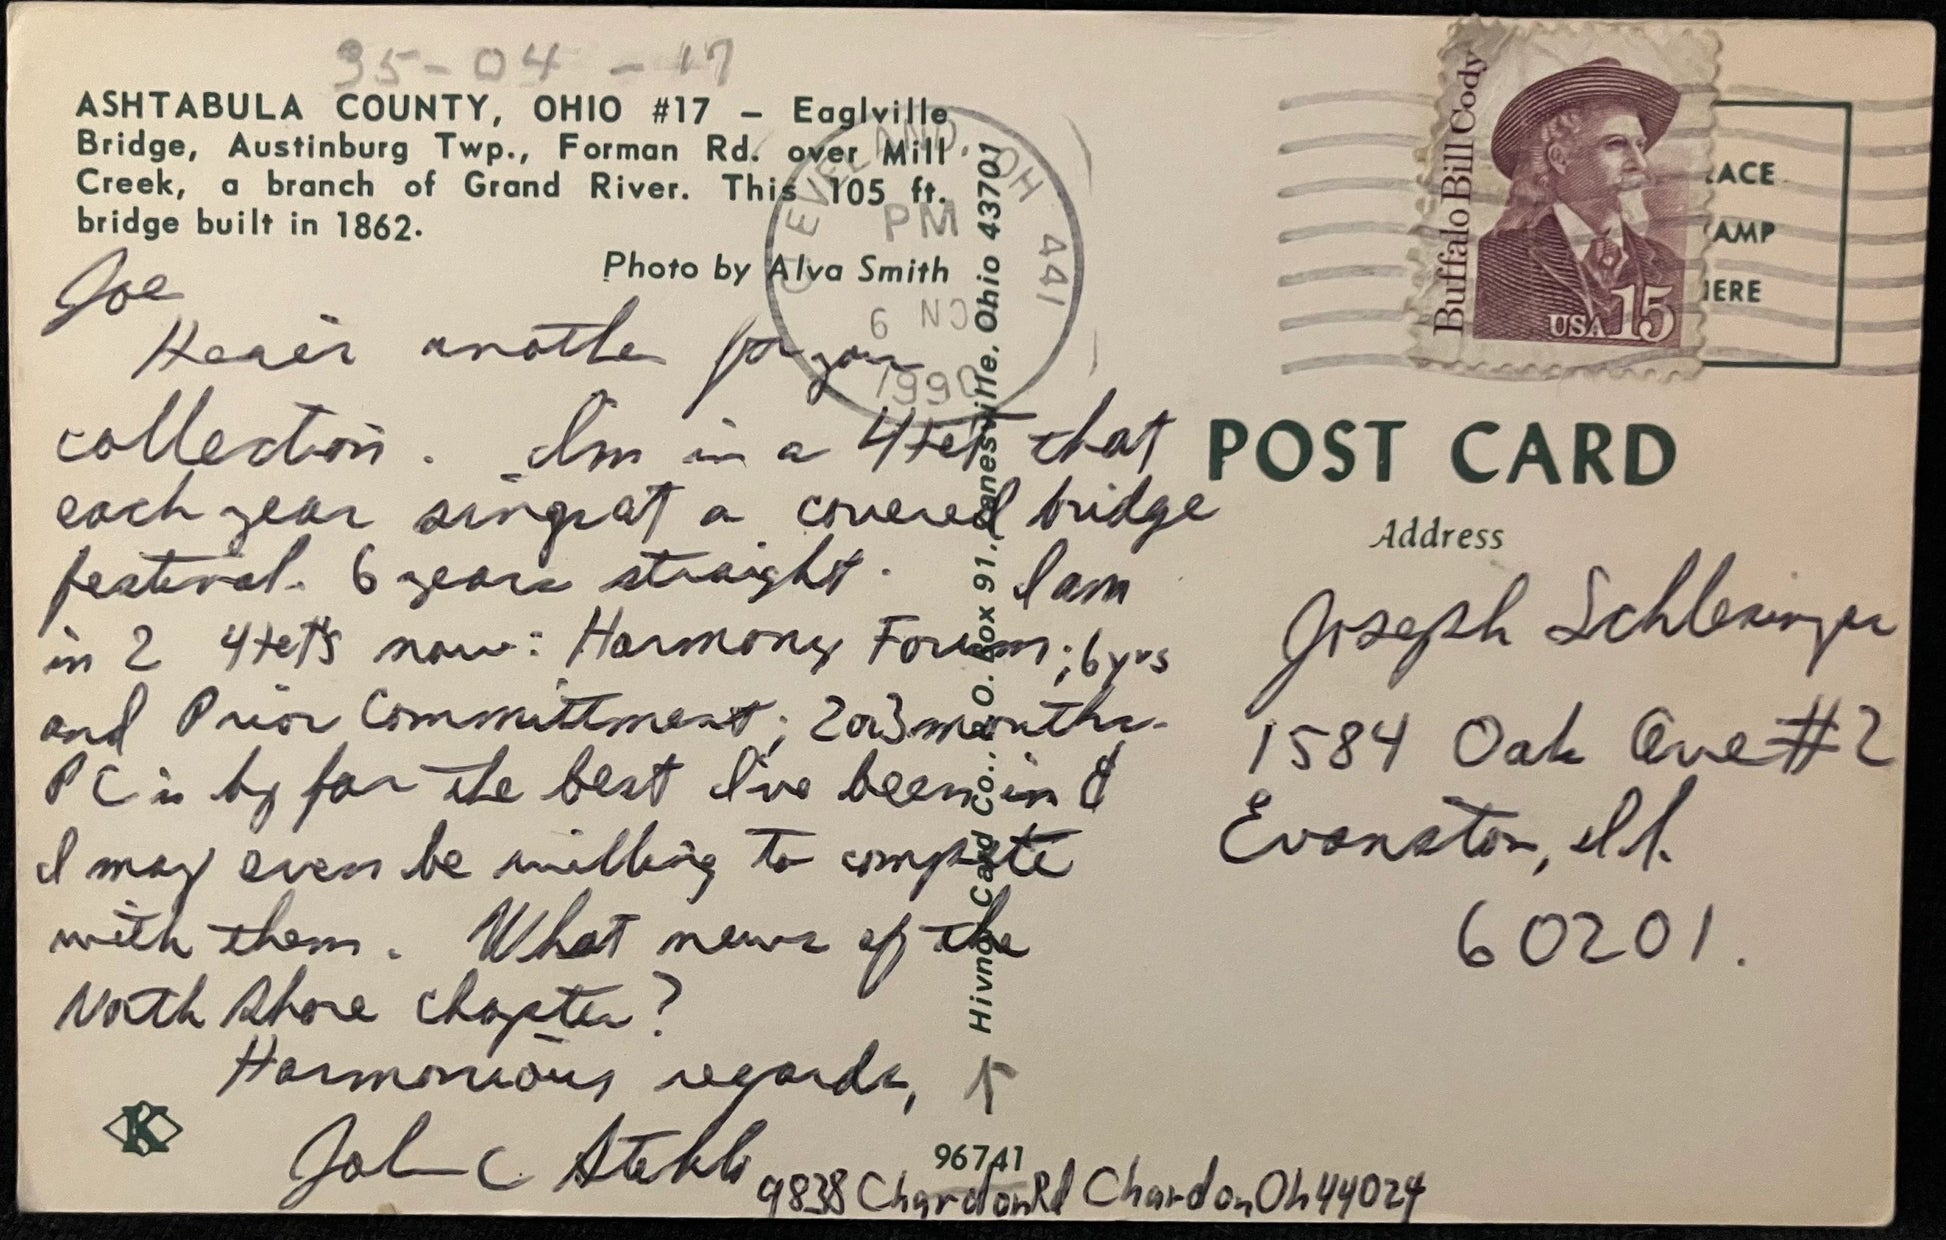 35-04-17
ASHTABULA COUNTY, OHIO #17 – Eaglville
Bridge, Austinburg Twp., Forman Rd. over Mill
Creek, a branch of Grand River. This 105 ft.
bridge built in 1862.
Photo by Alva Smith
CLEVELAND, OH 441
PM
6
1990
Buffalo Bill Cody
USA 15
ACE
AMP
HERE
POST CARD
Address
Joe
another for your
collection. I'm in a 4tet that
each year sings at a covered bridge
festival. 6 years straight. I am
in 2 4tets now: Harmony Forum; 6yrs
and Prior Committment; 2or3 months.
PC is by far the best I've been in &
I may even be willing to compete
with them. What news of the
North Shore chapter?
Harmonious regards,
John C
9838 Chardon Rd Chardon Oh 44024
Joseph Schlesinger
1584 Oak Ave #2
Evanston, Ill.
60201.
Hivnor Card Co., P.O. Box 91, Zanesville, Ohio 43701
K
96741